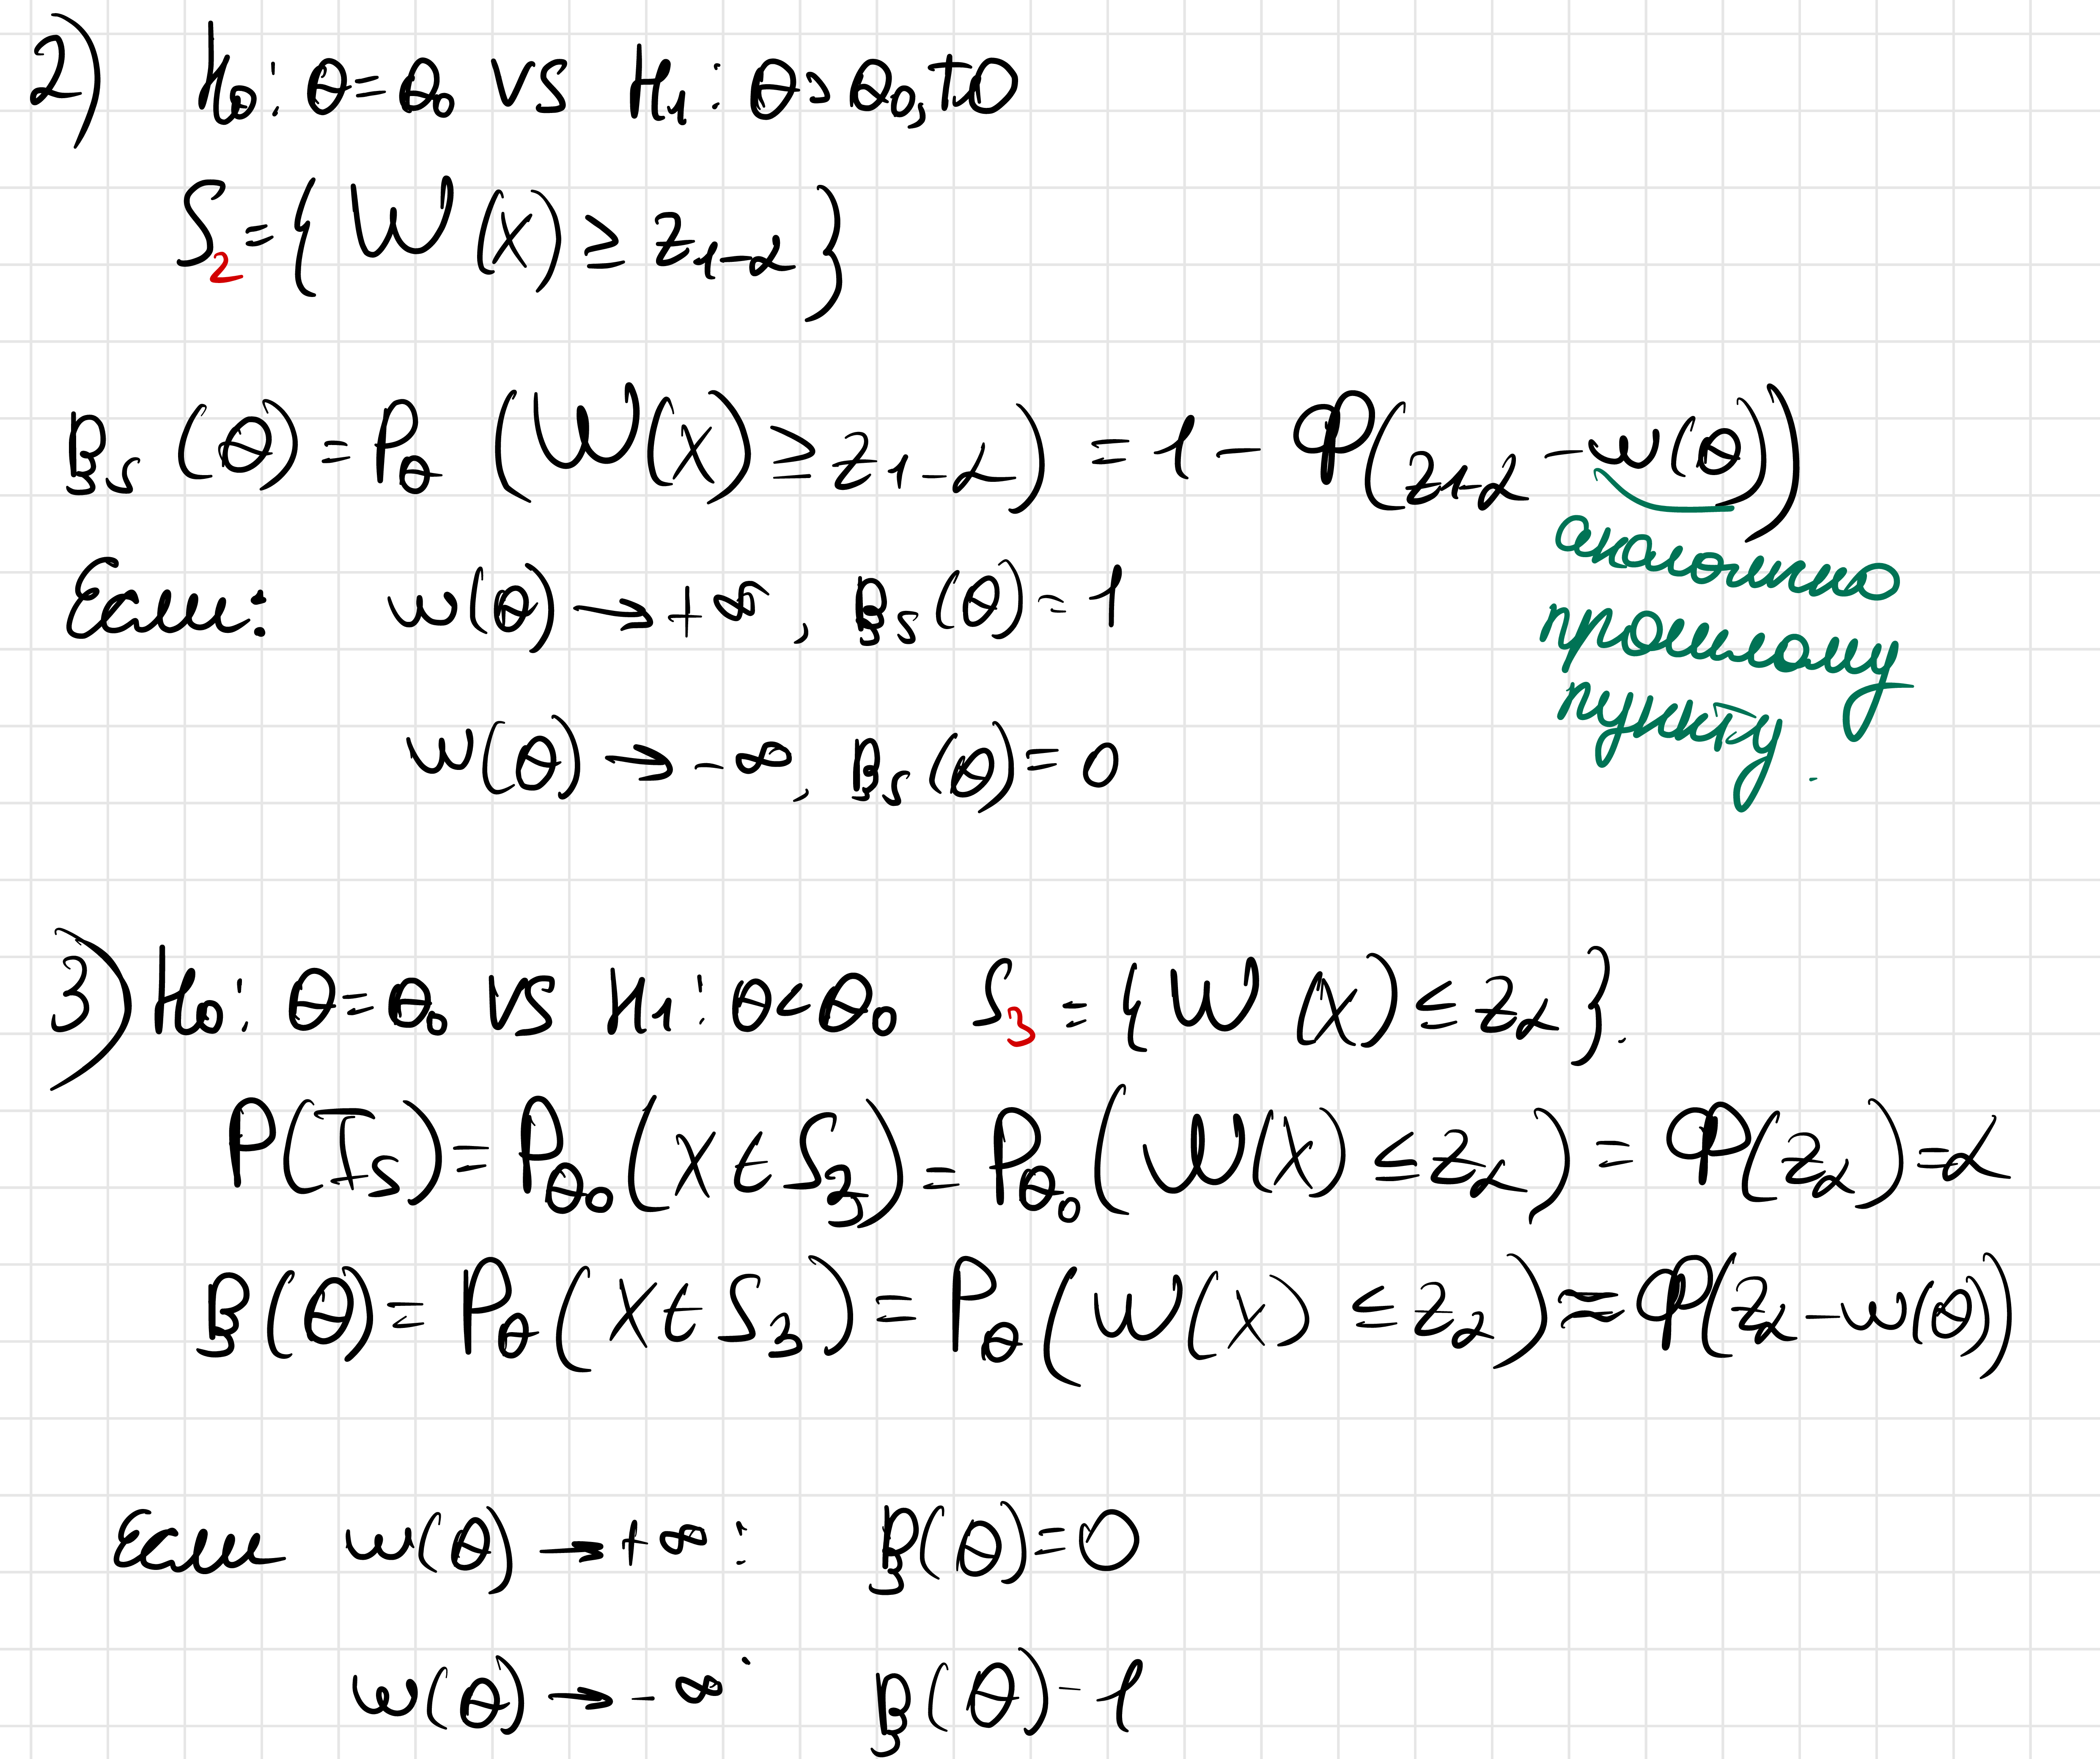 2) H₀: θ=θ₀ vs H₁: θ>θ₀, то
S₂={W(X) ≥ z₁₋α}
βₛ(θ)=P_θ(W(X) ≥ z₁₋α) = 1 - Φ(z₁₋α - w(θ))
аналогично
прошлому
пункту.
Если: w(θ) → +∞, βₛ(θ)=1
w(θ) → -∞, βₛ(θ)=0
3) H₀: θ=θ₀ vs H₁: θ<θ₀ S₃={W(X) ≤ z_α}.
P(Iₛ)=P_θ₀(X∈S₃)=P_θ₀(W(X) ≤ z_α) = Φ(z_α)=α
β(θ)=P_θ(X∈S₃)=P_θ(W(X) ≤ z_α) ≈ Φ(z_α - w(θ))
Если w(θ) → +∞: β(θ)=0
w(θ) → -∞: β(θ)=1